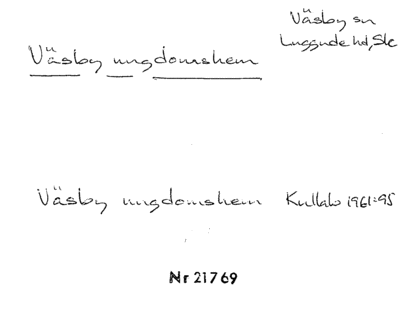 Väsby sn
Luggude hd, Sk
Väsby ungdomshem
Väsby ungdomshem Kullabo 1961:95
Nr 21769